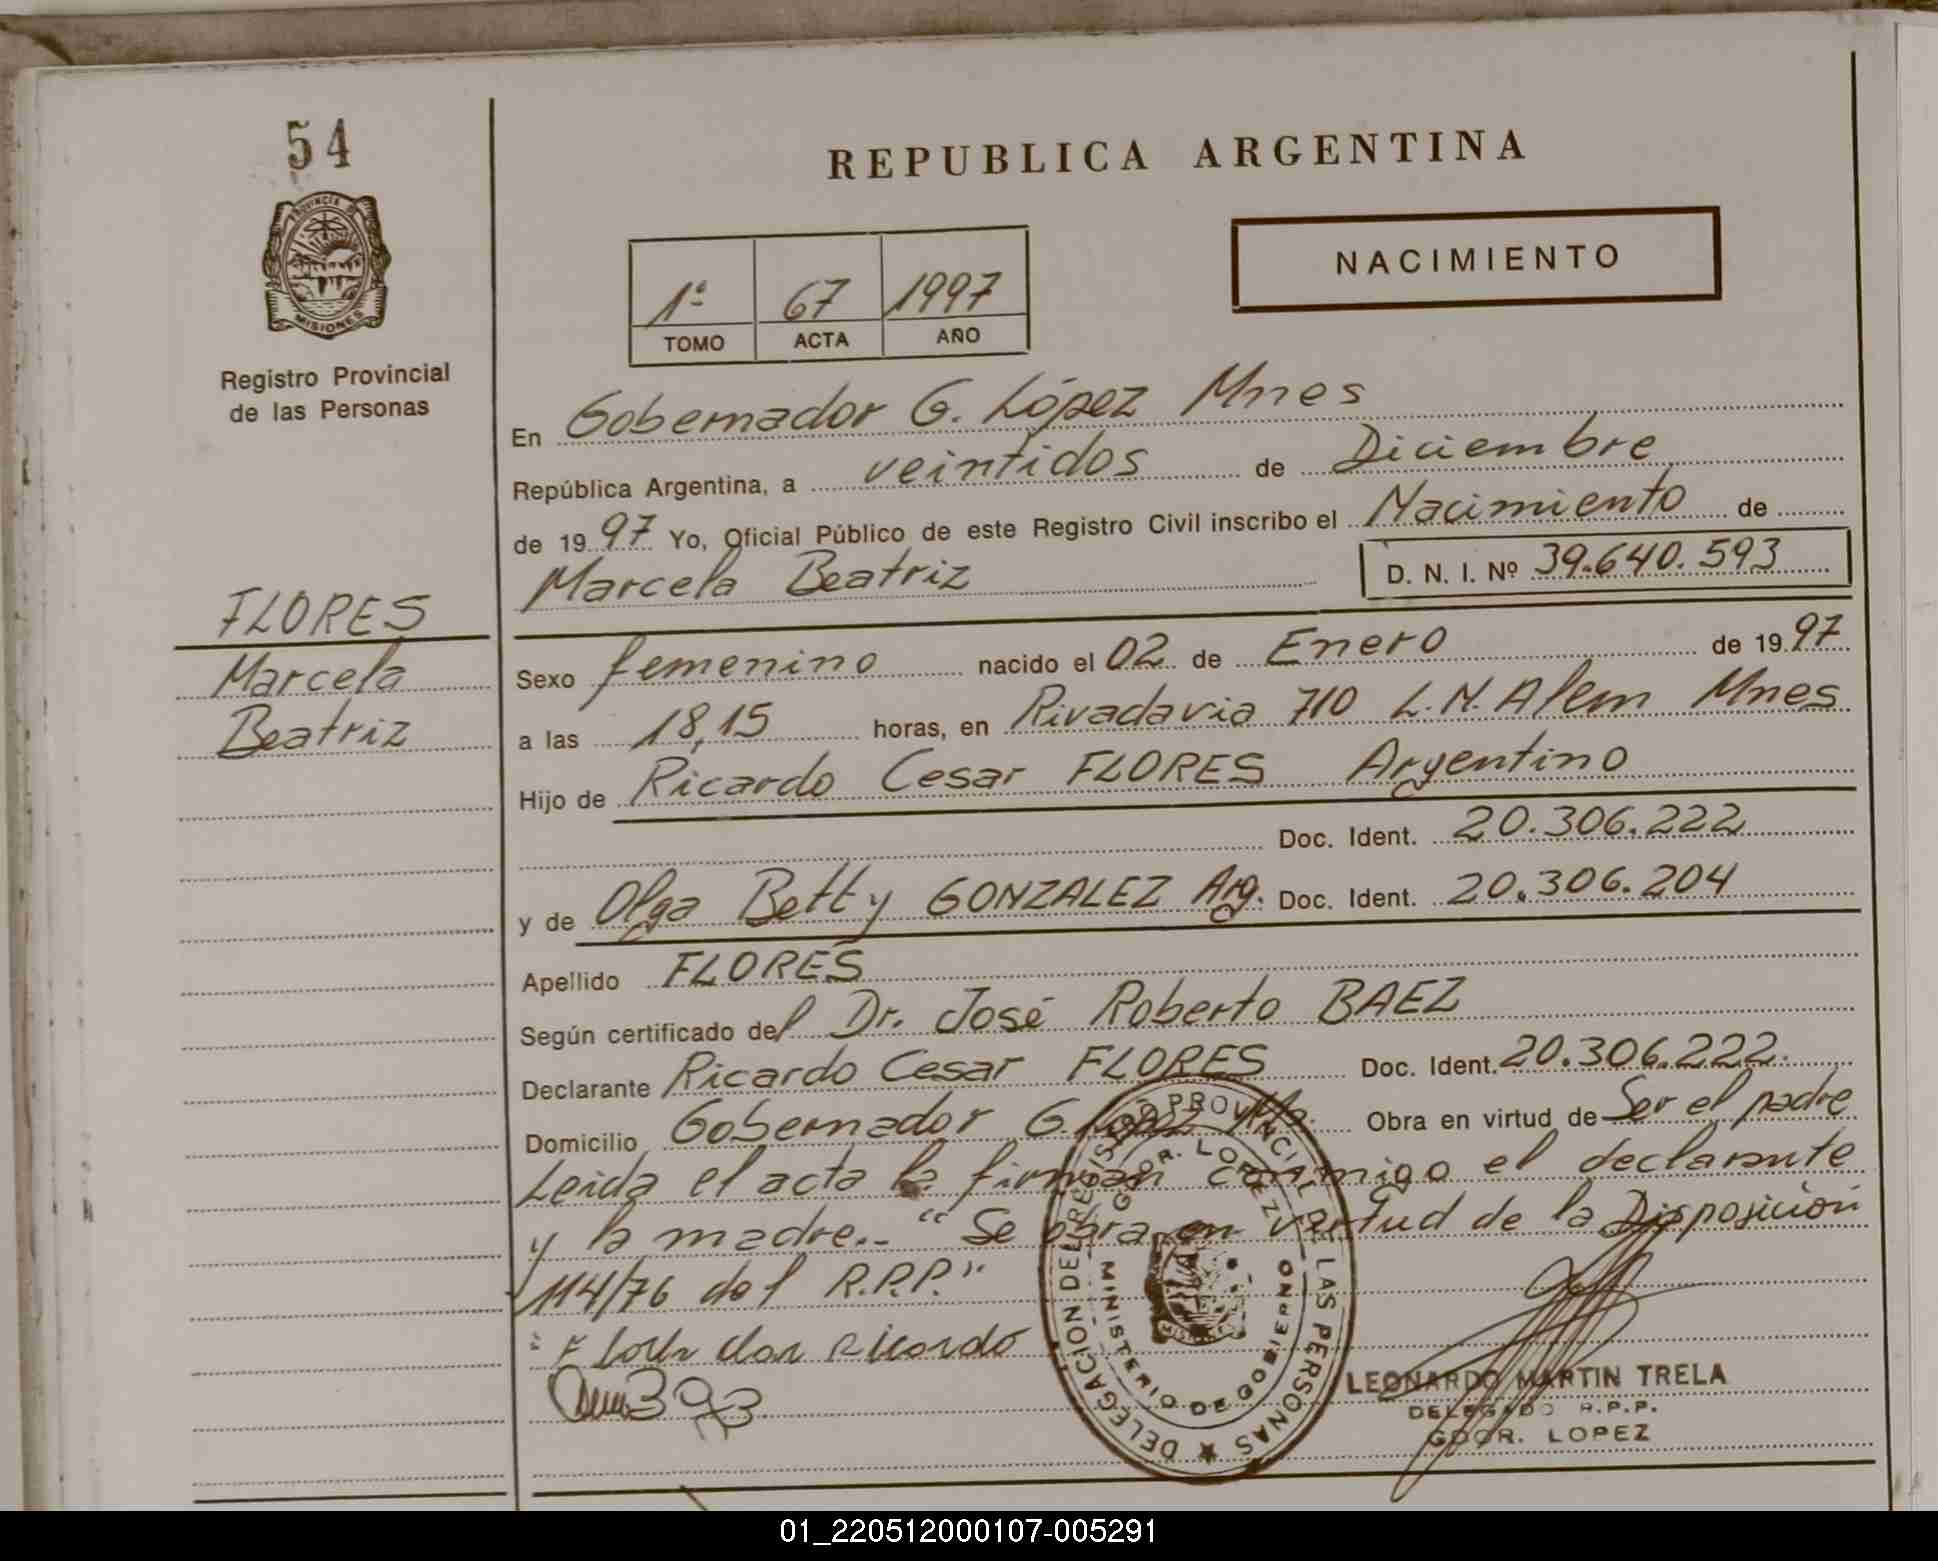 54
PROVINCIA DE
MISIONES
Registro Provincial
de las Personas
FLORES
Marcela
Beatriz
REPUBLICA ARGENTINA
NACIMIENTO
1º 67 1997
TOMO ACTA AÑO
En Gobernador G. López Mnes
República Argentina, a veintidos de Diciembre
de 1997 Yo, Oficial Público de este Registro Civil inscribo el Nacimiento de
Marcela Beatriz D. N. I. Nº 39.640.593
Sexo femenino nacido el 02 de Enero de 1997
a las 18,15 horas, en Rivadavia 710 L.N. Alem Mnes
Hijo de Ricardo Cesar FLORES Argentino
Doc. Ident. 20.306.222
y de Olga Betty GONZALEZ Arg. Doc. Ident. 20.306.204
Apellido FLORES
Según certificado del Dr. José Roberto BAEZ
Declarante Ricardo Cesar FLORES Doc. Ident. 20.306.222.
Domicilio Gobernador G. López Mnes. Obra en virtud de Ser el padre
Leida el acta la firman conmigo el declarante
y la madre.- "Se obra en virtud de la Disposición
114/76 del R.P.P."
Ricardo
DELEGACION DEL REGISTRO PROVINCIAL DE LAS PERSONAS
GDOR. LOPEZ
MINISTERIO DE GOBIERNO
LEONARDO MARTIN TRELA
DELEGADO R.P.P.
GDOR. LOPEZ
01_220512000107-005291